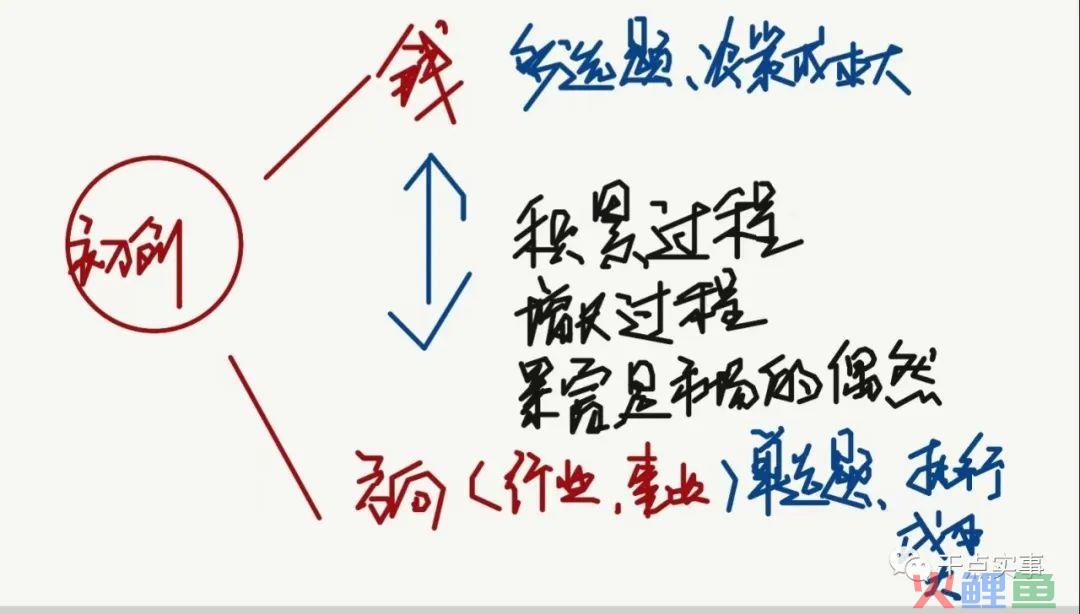 钱 多选题、决策成本大
初创
积累过程
增长过程
暴富是市场的偶然
方向(行业、事业)单选题、执行
成本
大
干点实事
火鲤鱼